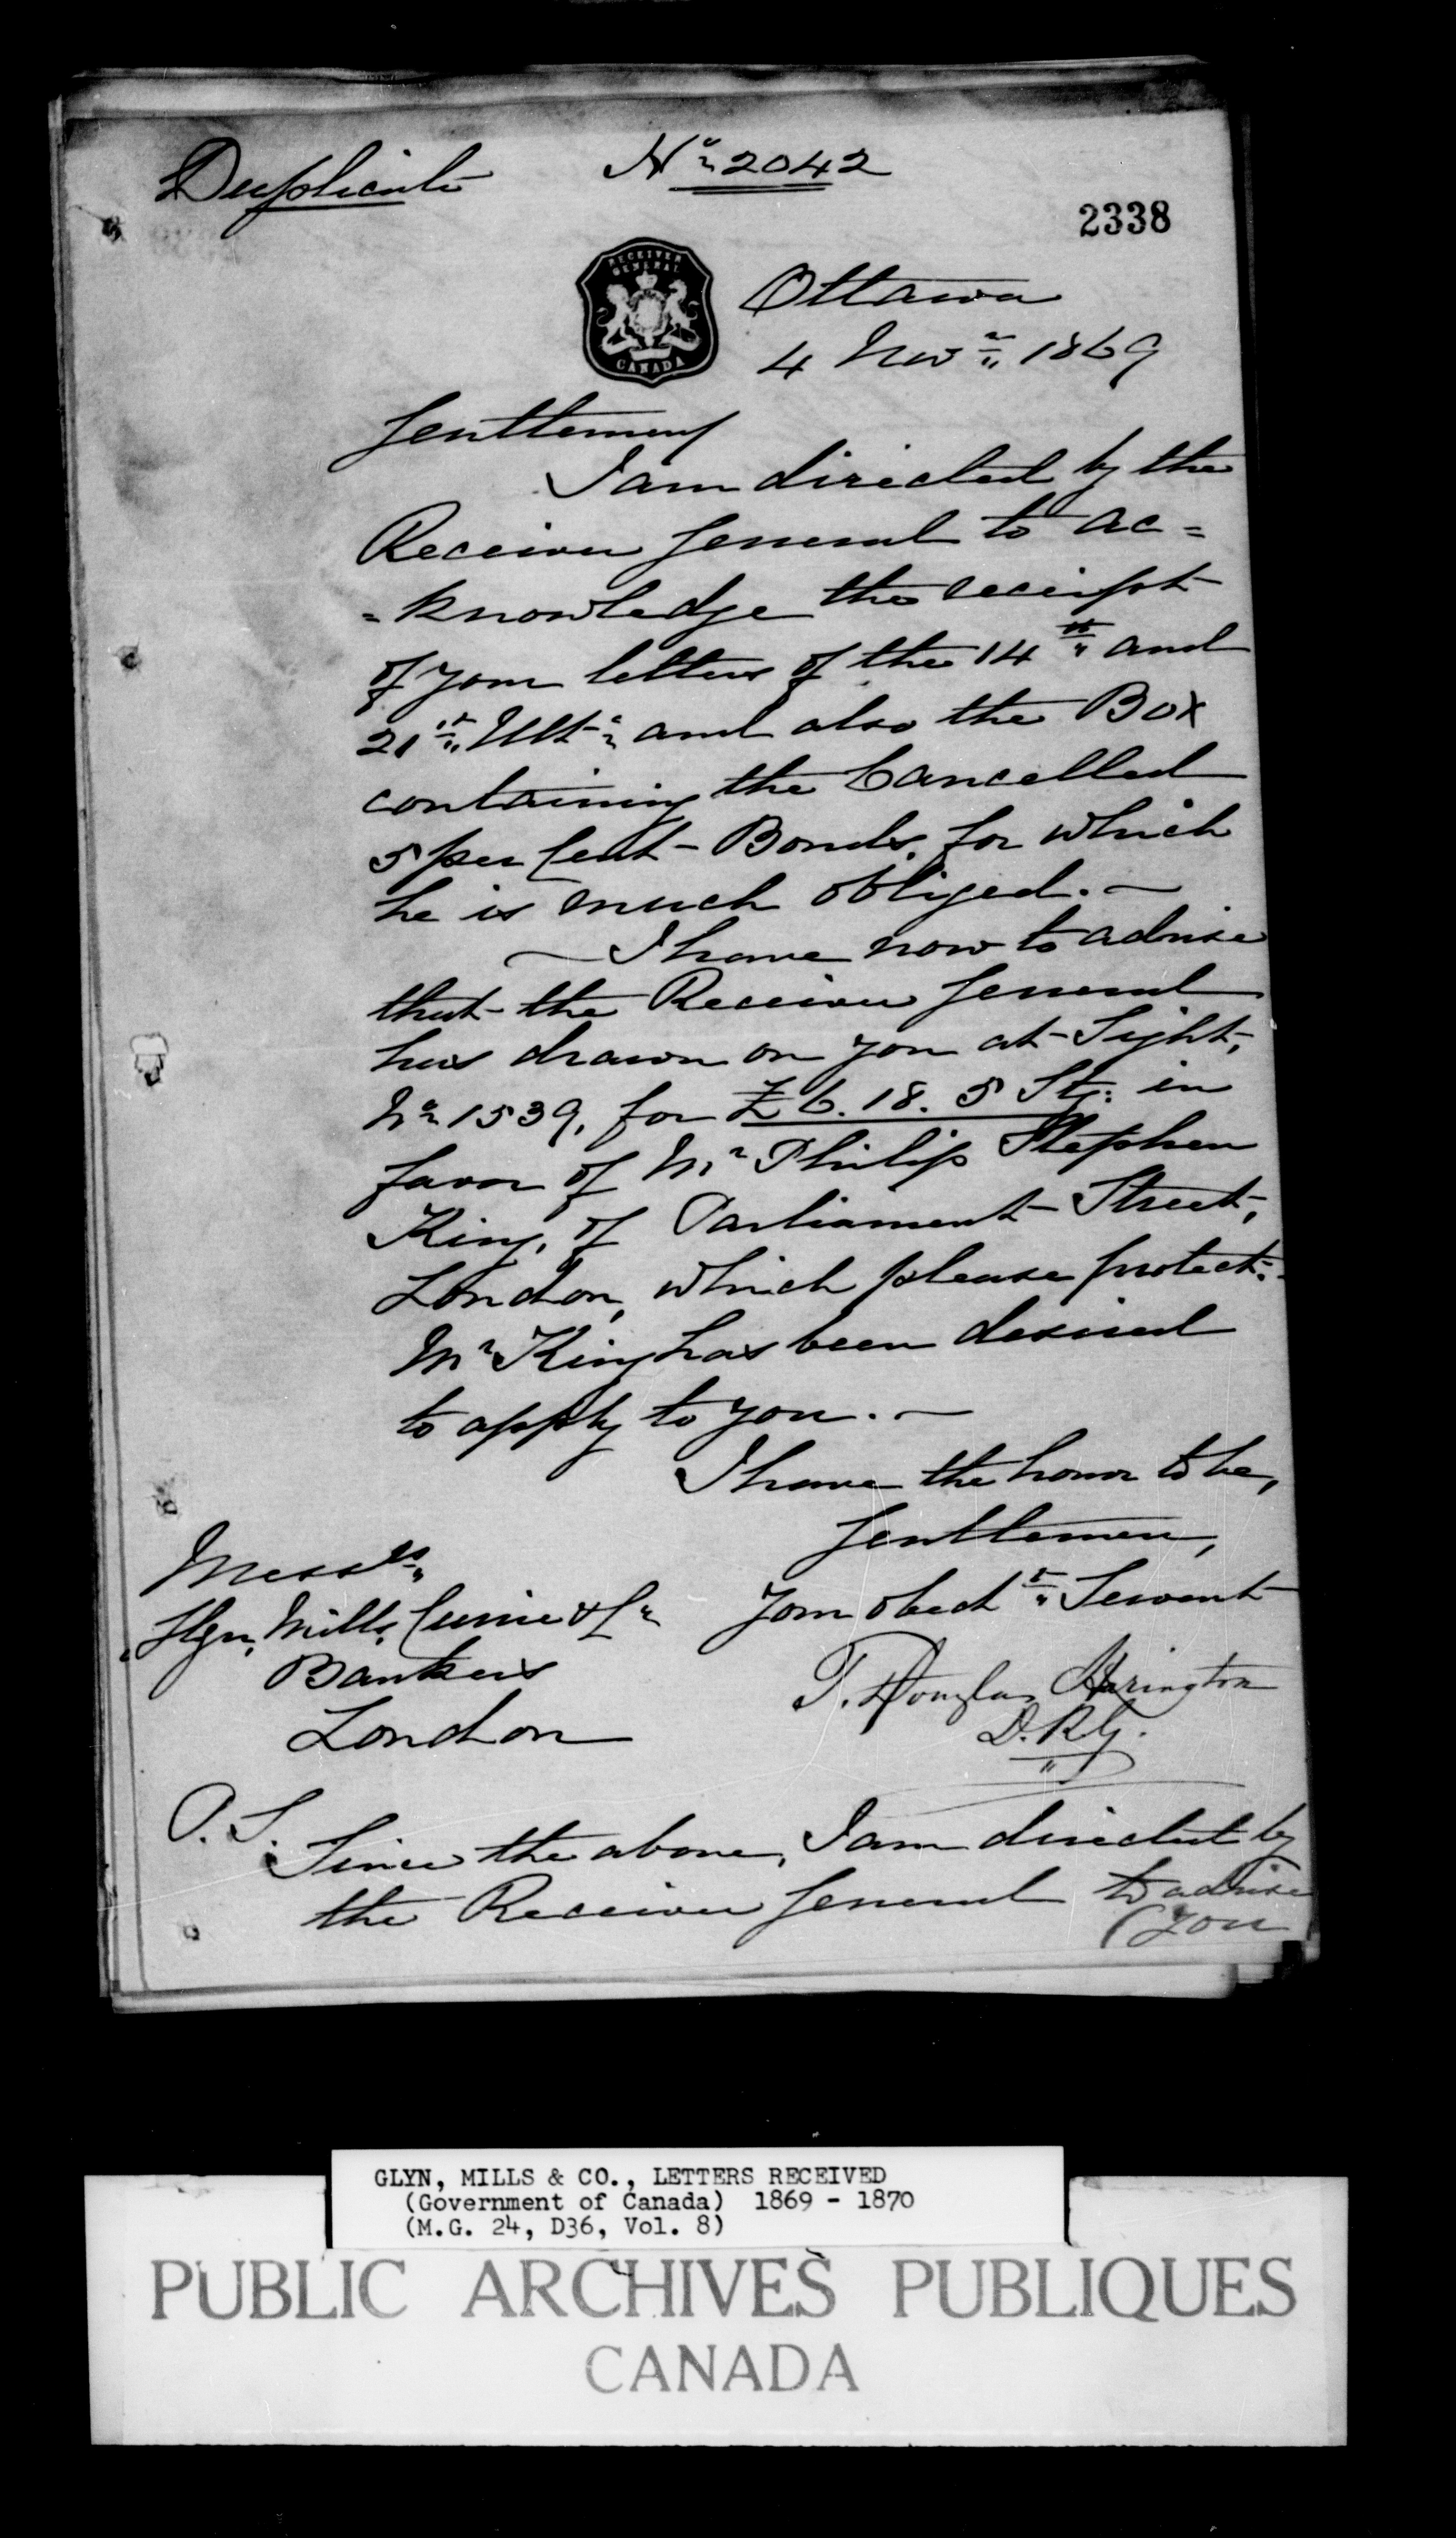 Duplicate
No 2042
2338
RECEIVER
GENERAL
CANADA
Ottawa
4 Novr 1869
Gentlemen
I am directed by the
Receiver General to ac=
=knowledge the receipt
of your letters of the 14th and
21st Ulto and also the Box
containing the Cancelled
5 per Cent Bonds, for which
he is much obliged. —
— I have now to advise
that the Receiver General
has drawn on you at Sight,
No 1539, for £6. 18. 5 Stg: in
favor of Mr Philip Stephen
King, of Parliament Street,
London, which please protect.
Mr King has been desired
to apply to you. —
I have the honor to be,
Gentlemen,
Your obedt Servant
T. Douglas Harington
D.R.G.
Messrs
Glyn, Mills, Currie & Co
Bankers
London
P.S.
Since the above, I am directed by
the Receiver General to advise
(you
GLYN, MILLS & CO., LETTERS RECEIVED
(Government of Canada) 1869 - 1870
(M.G. 24, D36, Vol. 8)
PUBLIC ARCHIVES PUBLIQUES
CANADA